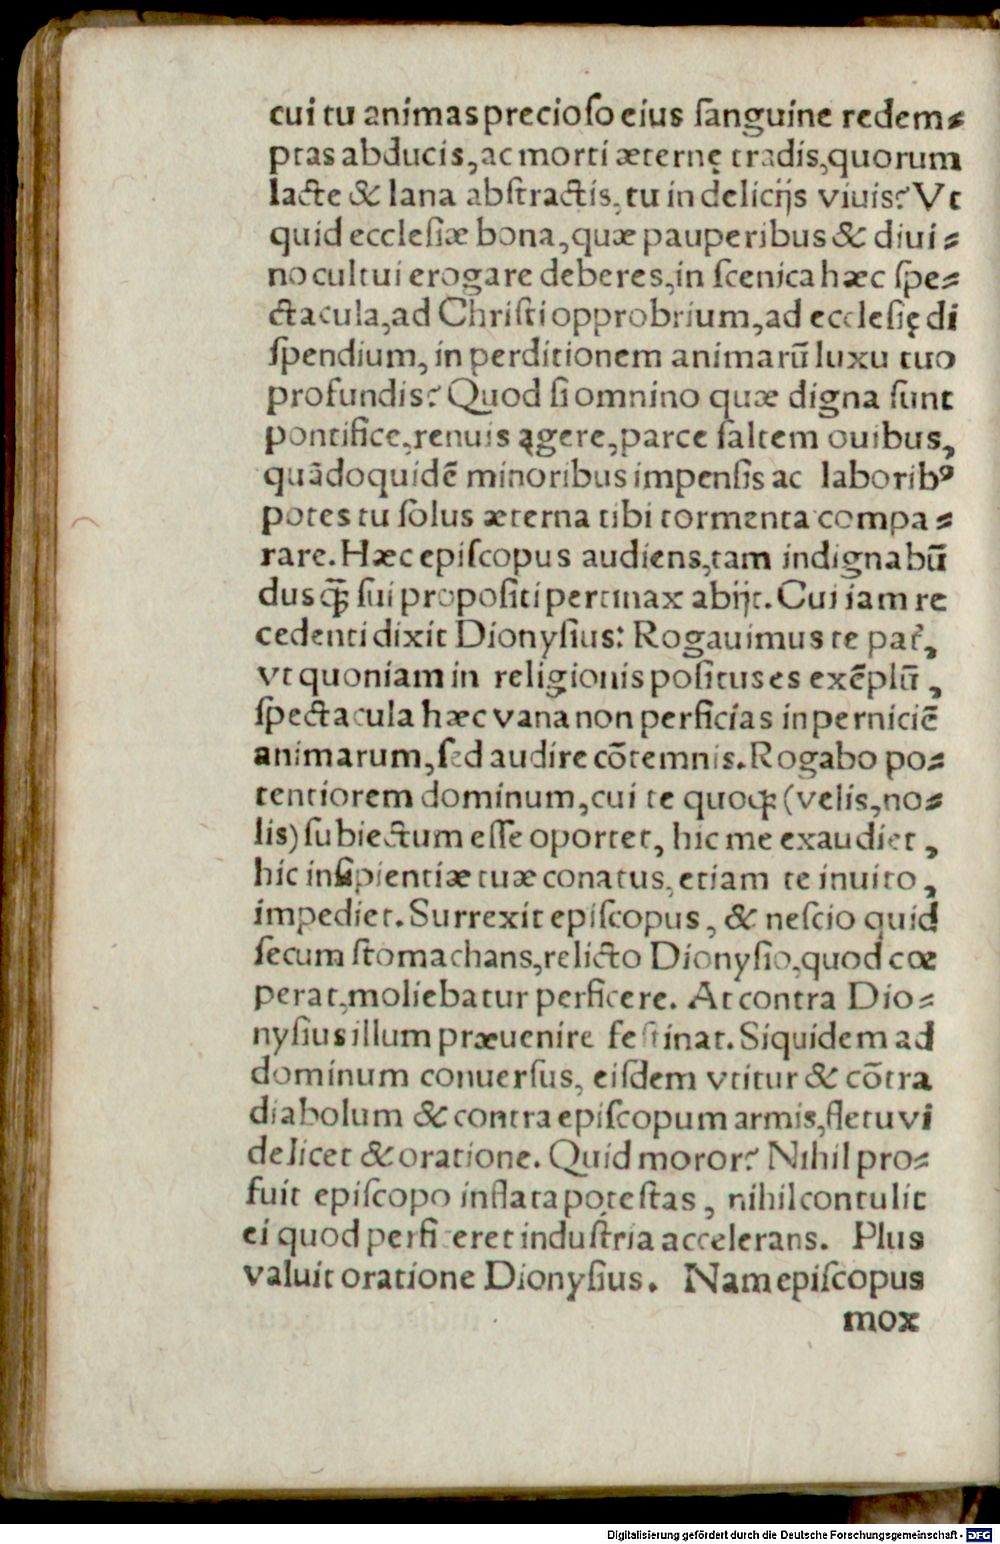 cui tu animas precioſo eius ſanguine redem⸗
ptas abducis, ac morti æternę tradis, quorum
lacte & lana abſtractis, tu in delicijs viuis? Vt
quid eccleſiæ bona, quæ pauperibus & diui⸗
no cultui erogare deberes, in ſcenica hæc ſpe⸗
ctacula, ad Chriſti opprobrium, ad eccleſię di
ſpendium, in perditionem animarū luxu tuo
profundis? Quod ſi omnino quæ digna ſunt
pontifice, renuis ągere, parce ſaltem ouibus,
quādoquidē minoribus impenſis ac laboribꝰ
potes tu ſolus æterna tibi tormenta compa⸗
rare. Hæc epiſcopus audiens, tam indignabū
dus q̄ꝫ ſui propoſiti pertinax abijt. Cui iam re
cedenti dixit Dionyſius: Rogauimus te pat̉,
vt quoniam in religionis poſitus es exēplū,
ſpectacula hæc vana non perficias in perniciē
animarum, ſed audire cōtemnis. Rogabo po⸗
tentiorem dominum, cui te quoqꝫ (velis, no⸗
lis) ſubiectum eſſe oportet, hic me exaudiet,
hic inſipientiæ tuæ conatus, etiam te inuito,
impediet. Surrexit epiſcopus, & neſcio quid
ſecum ſtomachans, relicto Dionyſio, quod cœ
perat, moliebatur perficere. At contra Dio⸗
nyſius illum præuenire feſtinat. Siquidem ad
dominum conuerſus, eiſdem vtitur & cōtra
diabolum & contra epiſcopum armis, fletu vi
delicet & oratione. Quid moror? Nihil pro⸗
fuit epiſcopo inflata poteſtas, nihil contulit
ei quod perficeret induſtria accelerans. Plus
valuit oratione Dionyſius. Nam epiſcopus
mox
Digitalisierung gefördert durch die Deutsche Forschungsgemeinschaft - DFG